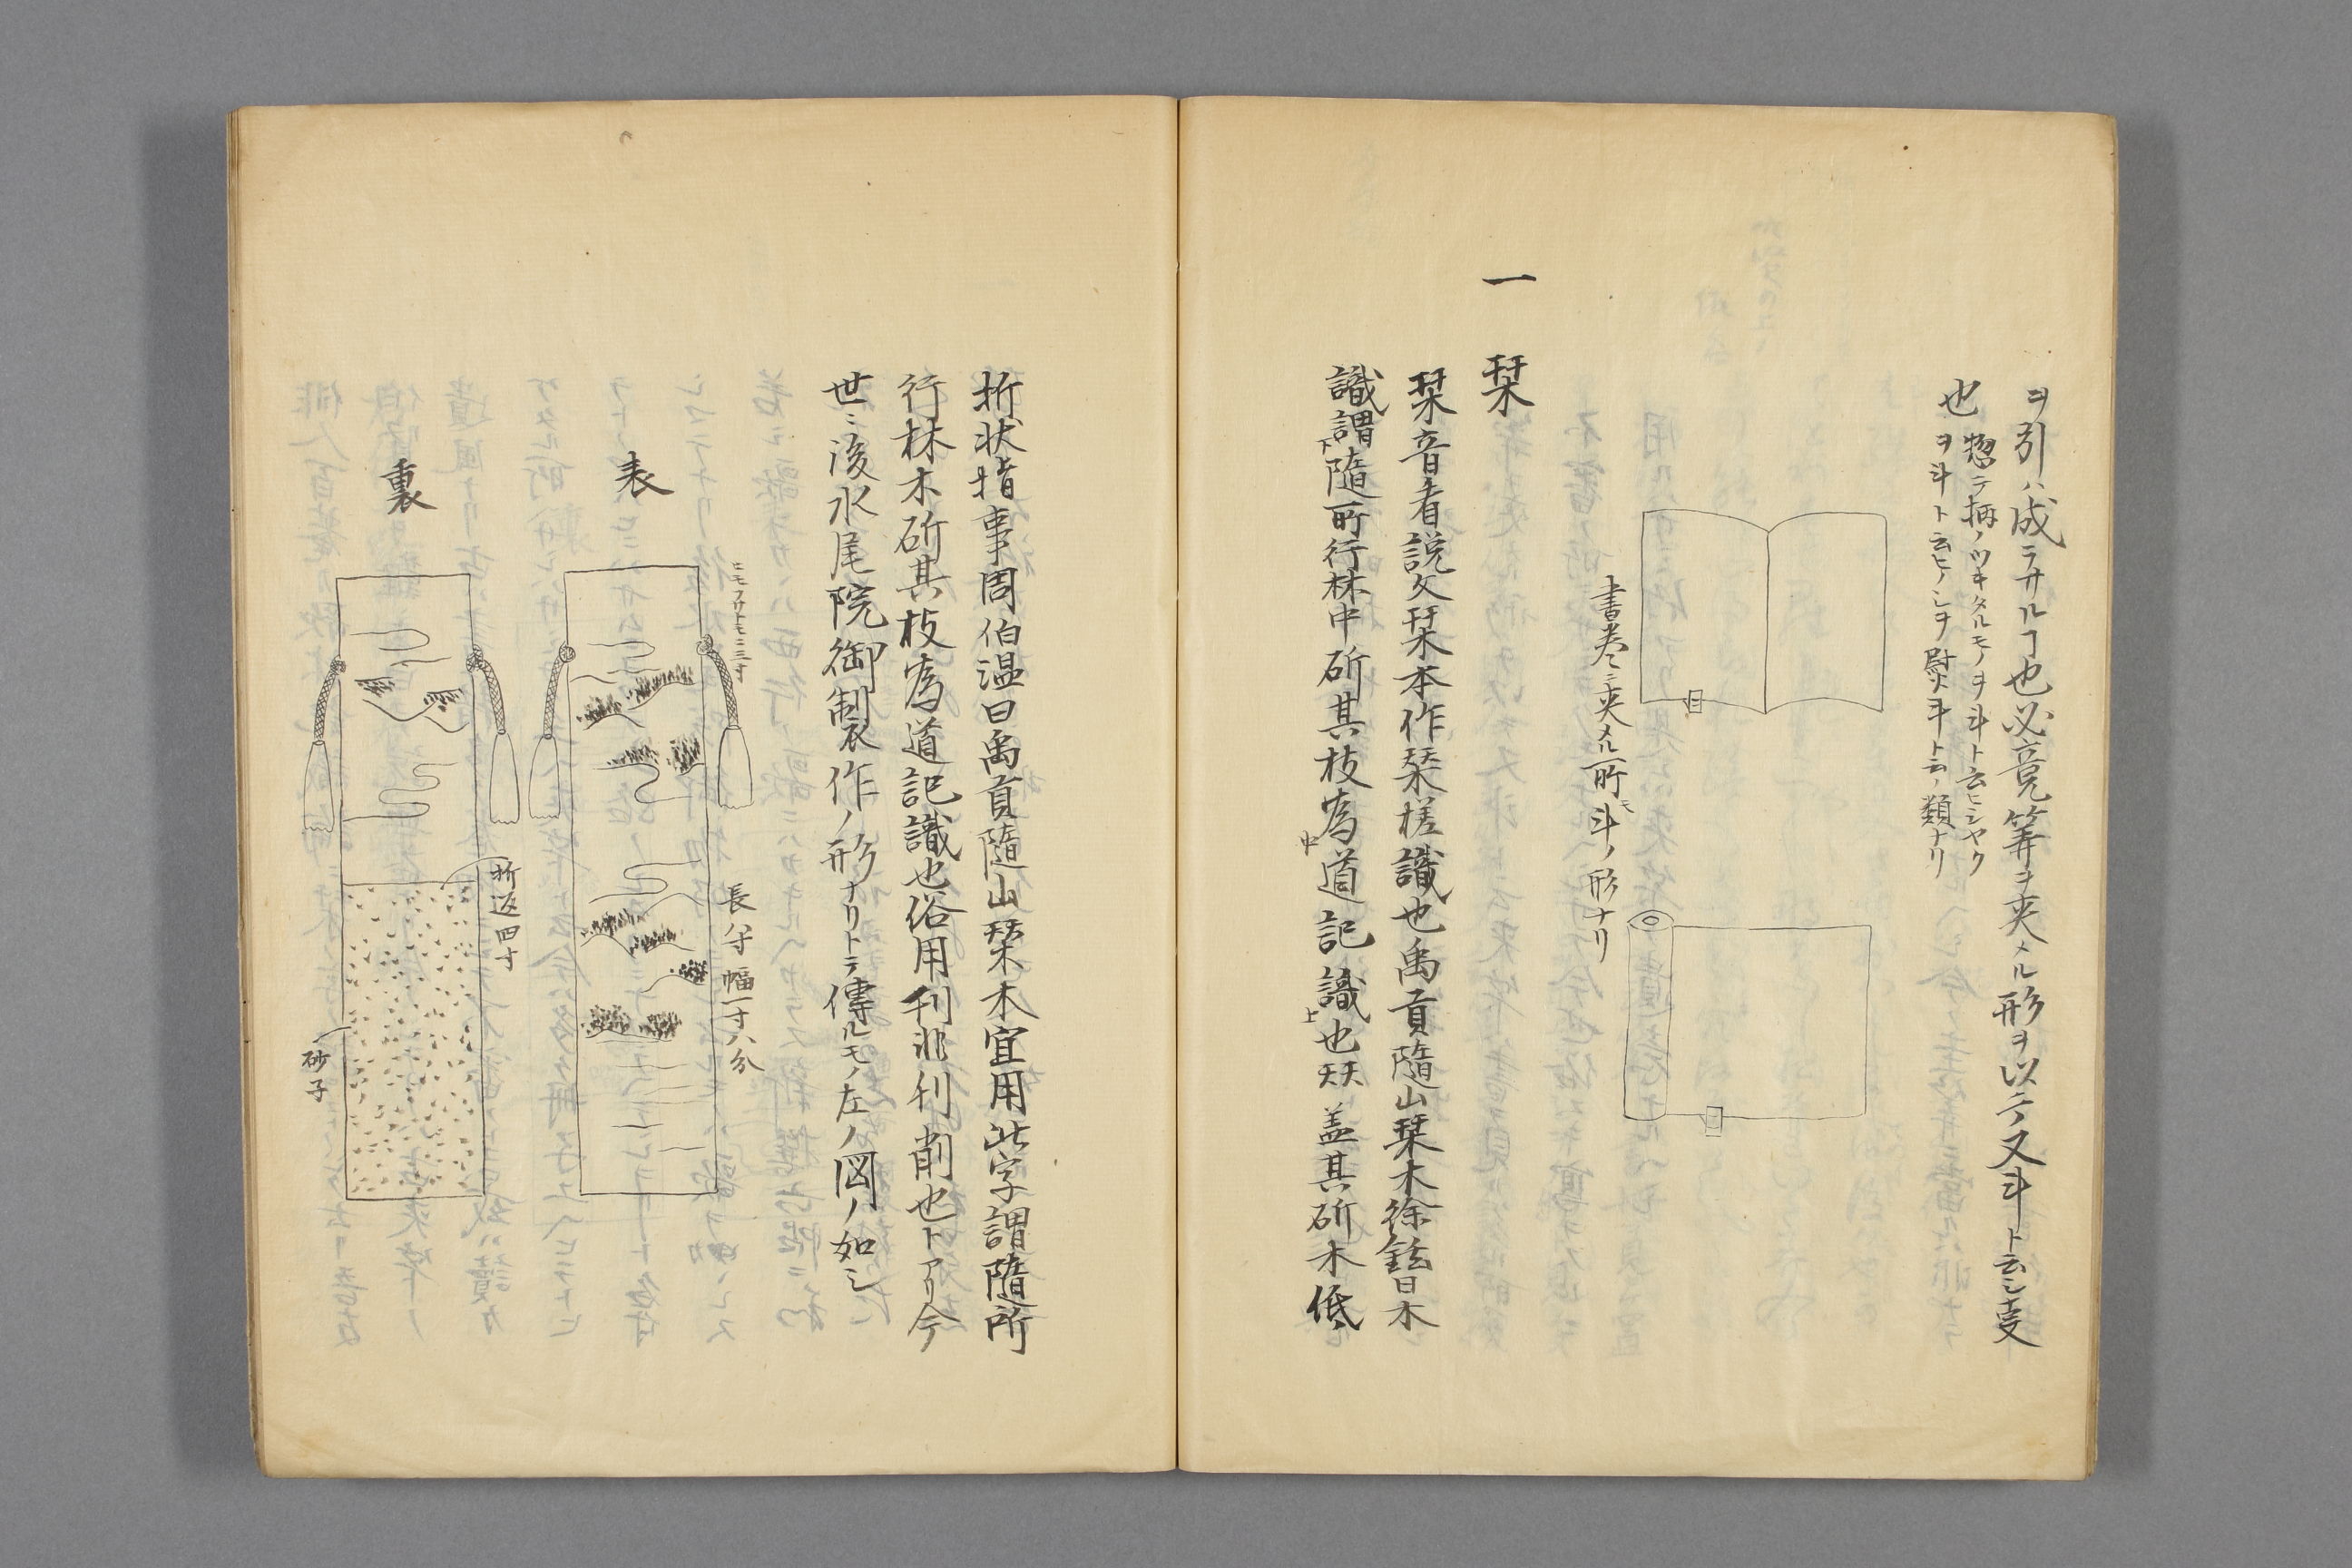 ヲ引ハ成ラサルヿ也必竟筭ヲ夾メル形ヲ以テ又斗ト云シ支
也
惣テ柄ノツキタルモノヲ斗ト云ヒシヤク
ヲ斗ト云ヒノシヲ熨斗ト云ノ類ナリ
書巻ニ夾メル所モ斗ノ形ナリ
一 栞
栞音看説文栞本作栞槎識也禹貢隨山栞木徐鉉曰木
識謂下隨所行林中斫其枝為中道記識上也 盖其斫木低
折状指事周伯温曰禹貢隨山栞木宜用此字謂隨所
行林木斫其枝為道記識也俗用刊非刊削也トアリ今
世ニ後水尾院御製作ノ形ナリトテ傳ルモノ左ノ図ノ如シ
表
ヒモフサトモニ三寸
長八寸 幅一寸八分
裏
折返四寸
砂子